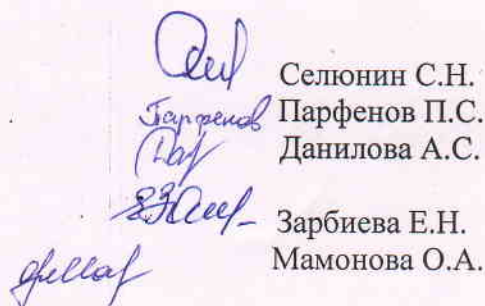 Селюнин С.Н.
Парфенов Парфенов П.С.
Данилова А.С.
Зарбиева Е.Н.
Мамонова О.А.